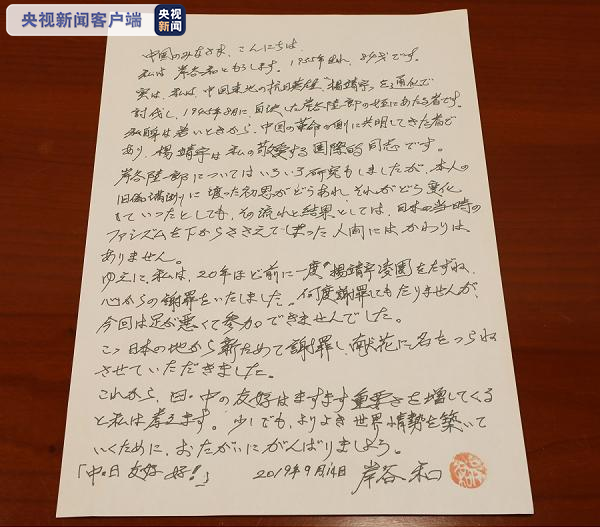 央视新闻客户端
央视新闻
中国のみなさま、こんにちは。
私は、岸谷和ともうします。1935年生れ、84才です。
実は、私は、中国東北の抗日英雄、"楊靖宇"を通化で
討伐し、1945年8月に、自決した岸谷隆一郎の姪にあたる者です。
私自身は若いときから、中国の革命の側に共鳴してきた者で
あり、楊靖宇は私の敬愛する国際的同志です。
岸谷隆一郎についてはいろいろ研究もしましたが、本人の
旧偽満州に渡った初思がどうあれ、それがどう変化
もていったとしても、その流れと結果としては、日本の当時の
ファシズムを下からささえてしまった人間にはかわりは
ありません。
ゆえに、私は、20年ほど前に一度"楊靖宇陵園をたずね、
心からの謝罪をいたしました。何度謝罪してもたりませんが、
今回は足が悪くて参加できませんでした。
この日本の地から新ためて謝罪し、献花に名をつらね
させていただきました。
これから、日・中の友好はますます重要さを増してくる
と私は考えます。少しでも、よりよき世界情勢を築いて
いくために、おたがいにがんばりましょう。
「中・日友好 好!」 2019年9月14日 岸谷 和